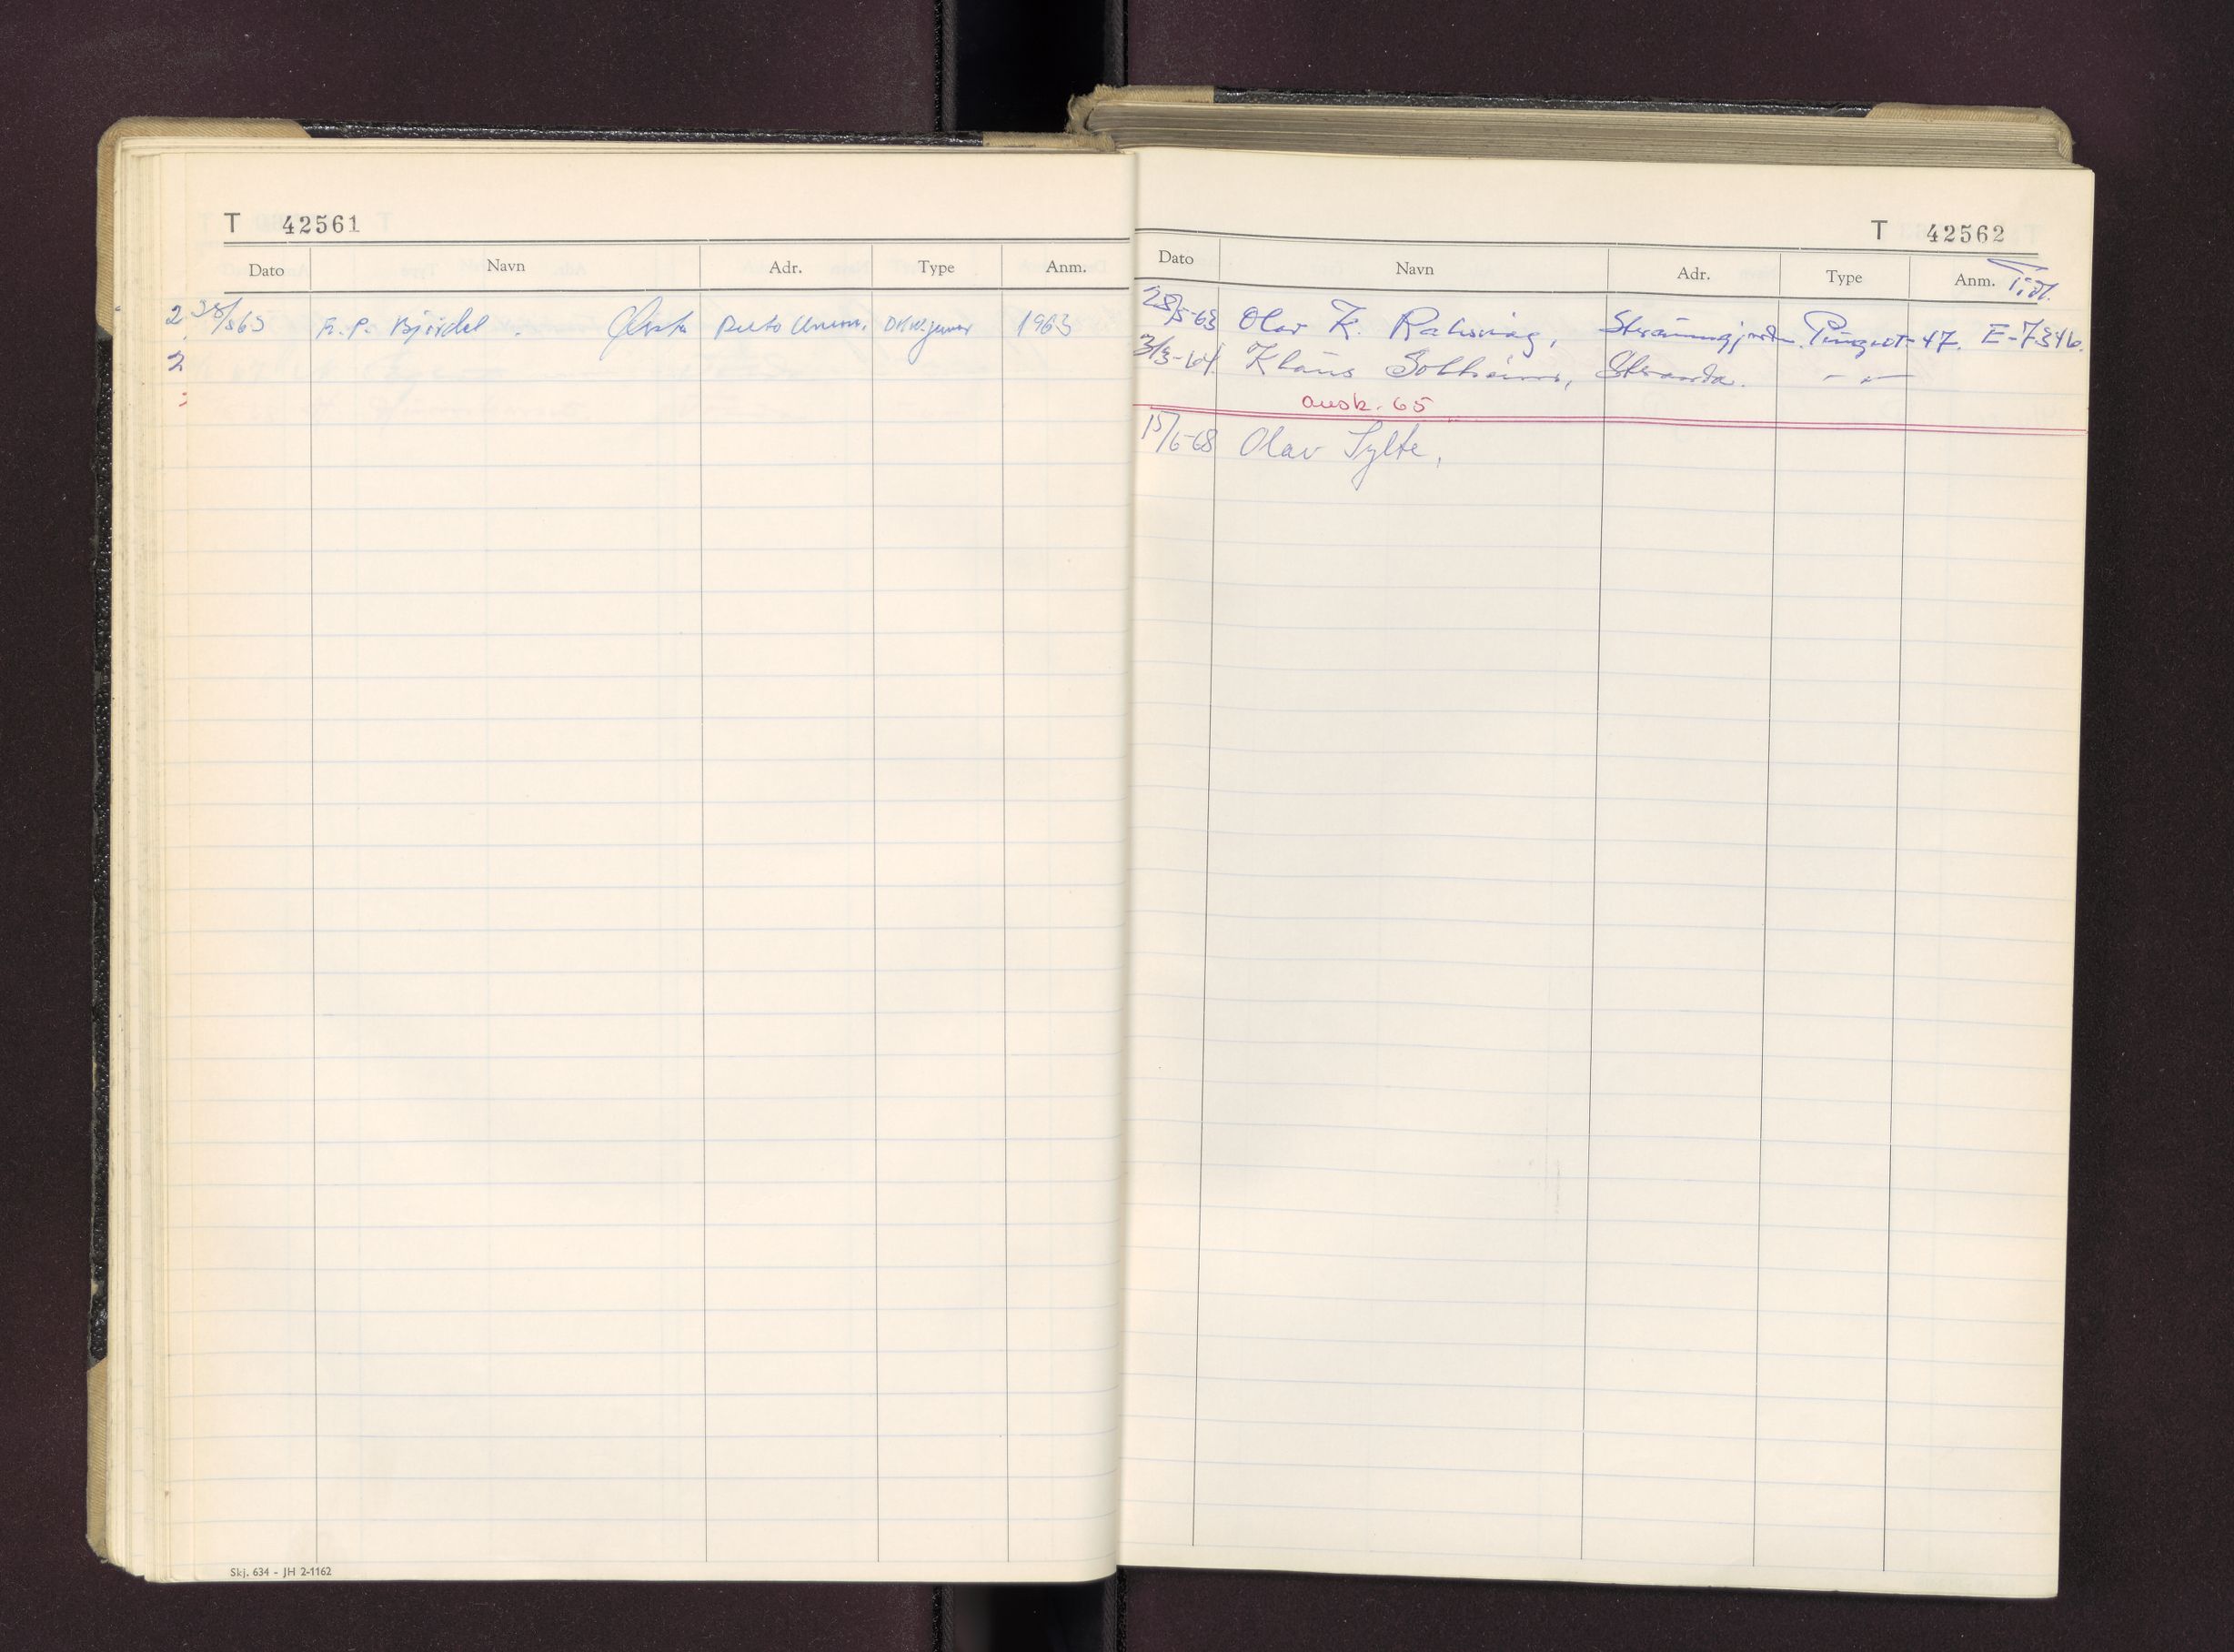 T 42561
Dato Navn Adr. Type Anm.
Ørsta Auto Union. DKW junior 1963
2
Skj. 634 - JH 2-1162
T 42562
Dato Navn Adr. Type Anm. Tidl.
28/5-63 Olav K. Strømmegjerde. Peugeot-47. E-7346.
3/3-64. Klaus Solheim, Stranda. - " -
avsk. 65
15/6-68 Olav Sylte,